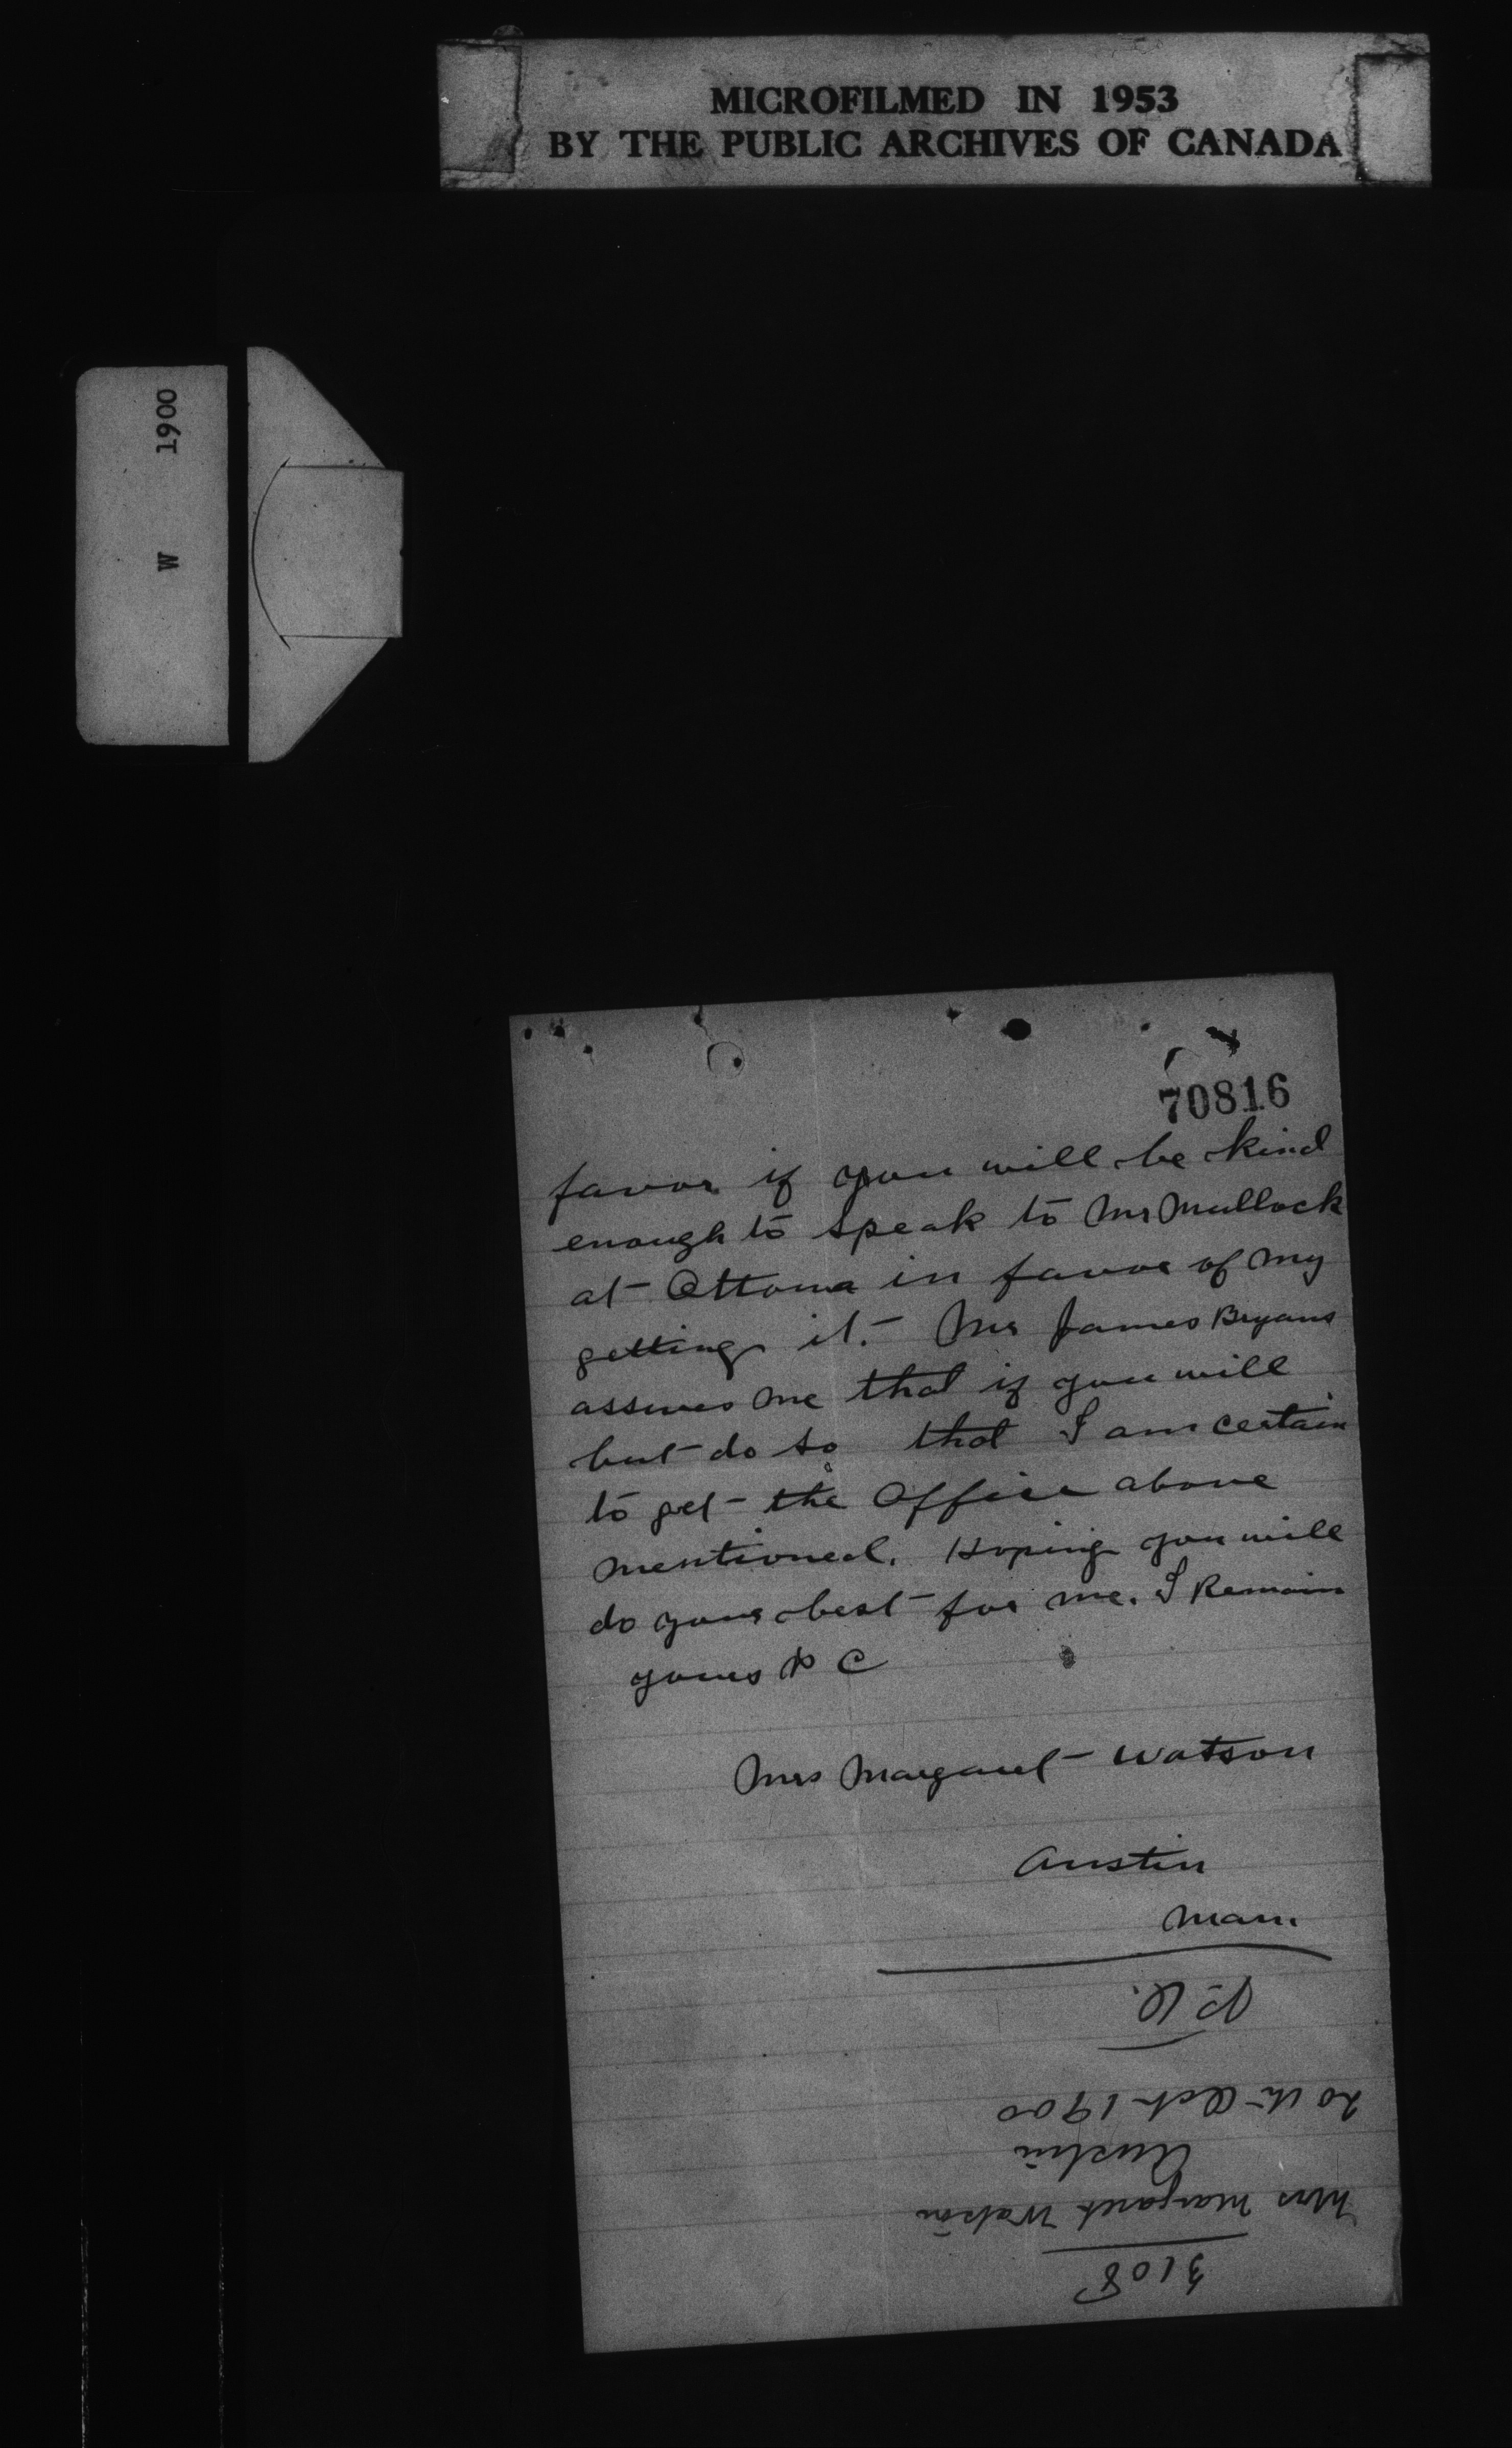 MICROFILMED IN 1953
BY THE PUBLIC ARCHIVES OF CANADA
W 1900
70816
favor if you will be kind
enough to speak to Mr Mullock
at Ottowa in favor of my
getting it. Mr James Bryans
assures me that if you will
but do so that I am certain
to get the Office above
mentioned. Hoping you will
do your best for me. I Remain
yours
Mrs Margaret Watson
Austin
Man.
3108
Mrs Margaret Watson
Austin
20th Oct 1900